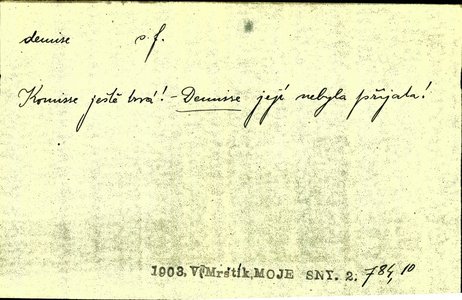 demise s. f.
Komisse ještě trvá! - Demisse její nebyla přijata!
1903, V. Mrštík, MOJE SNY. 2. 784, 10